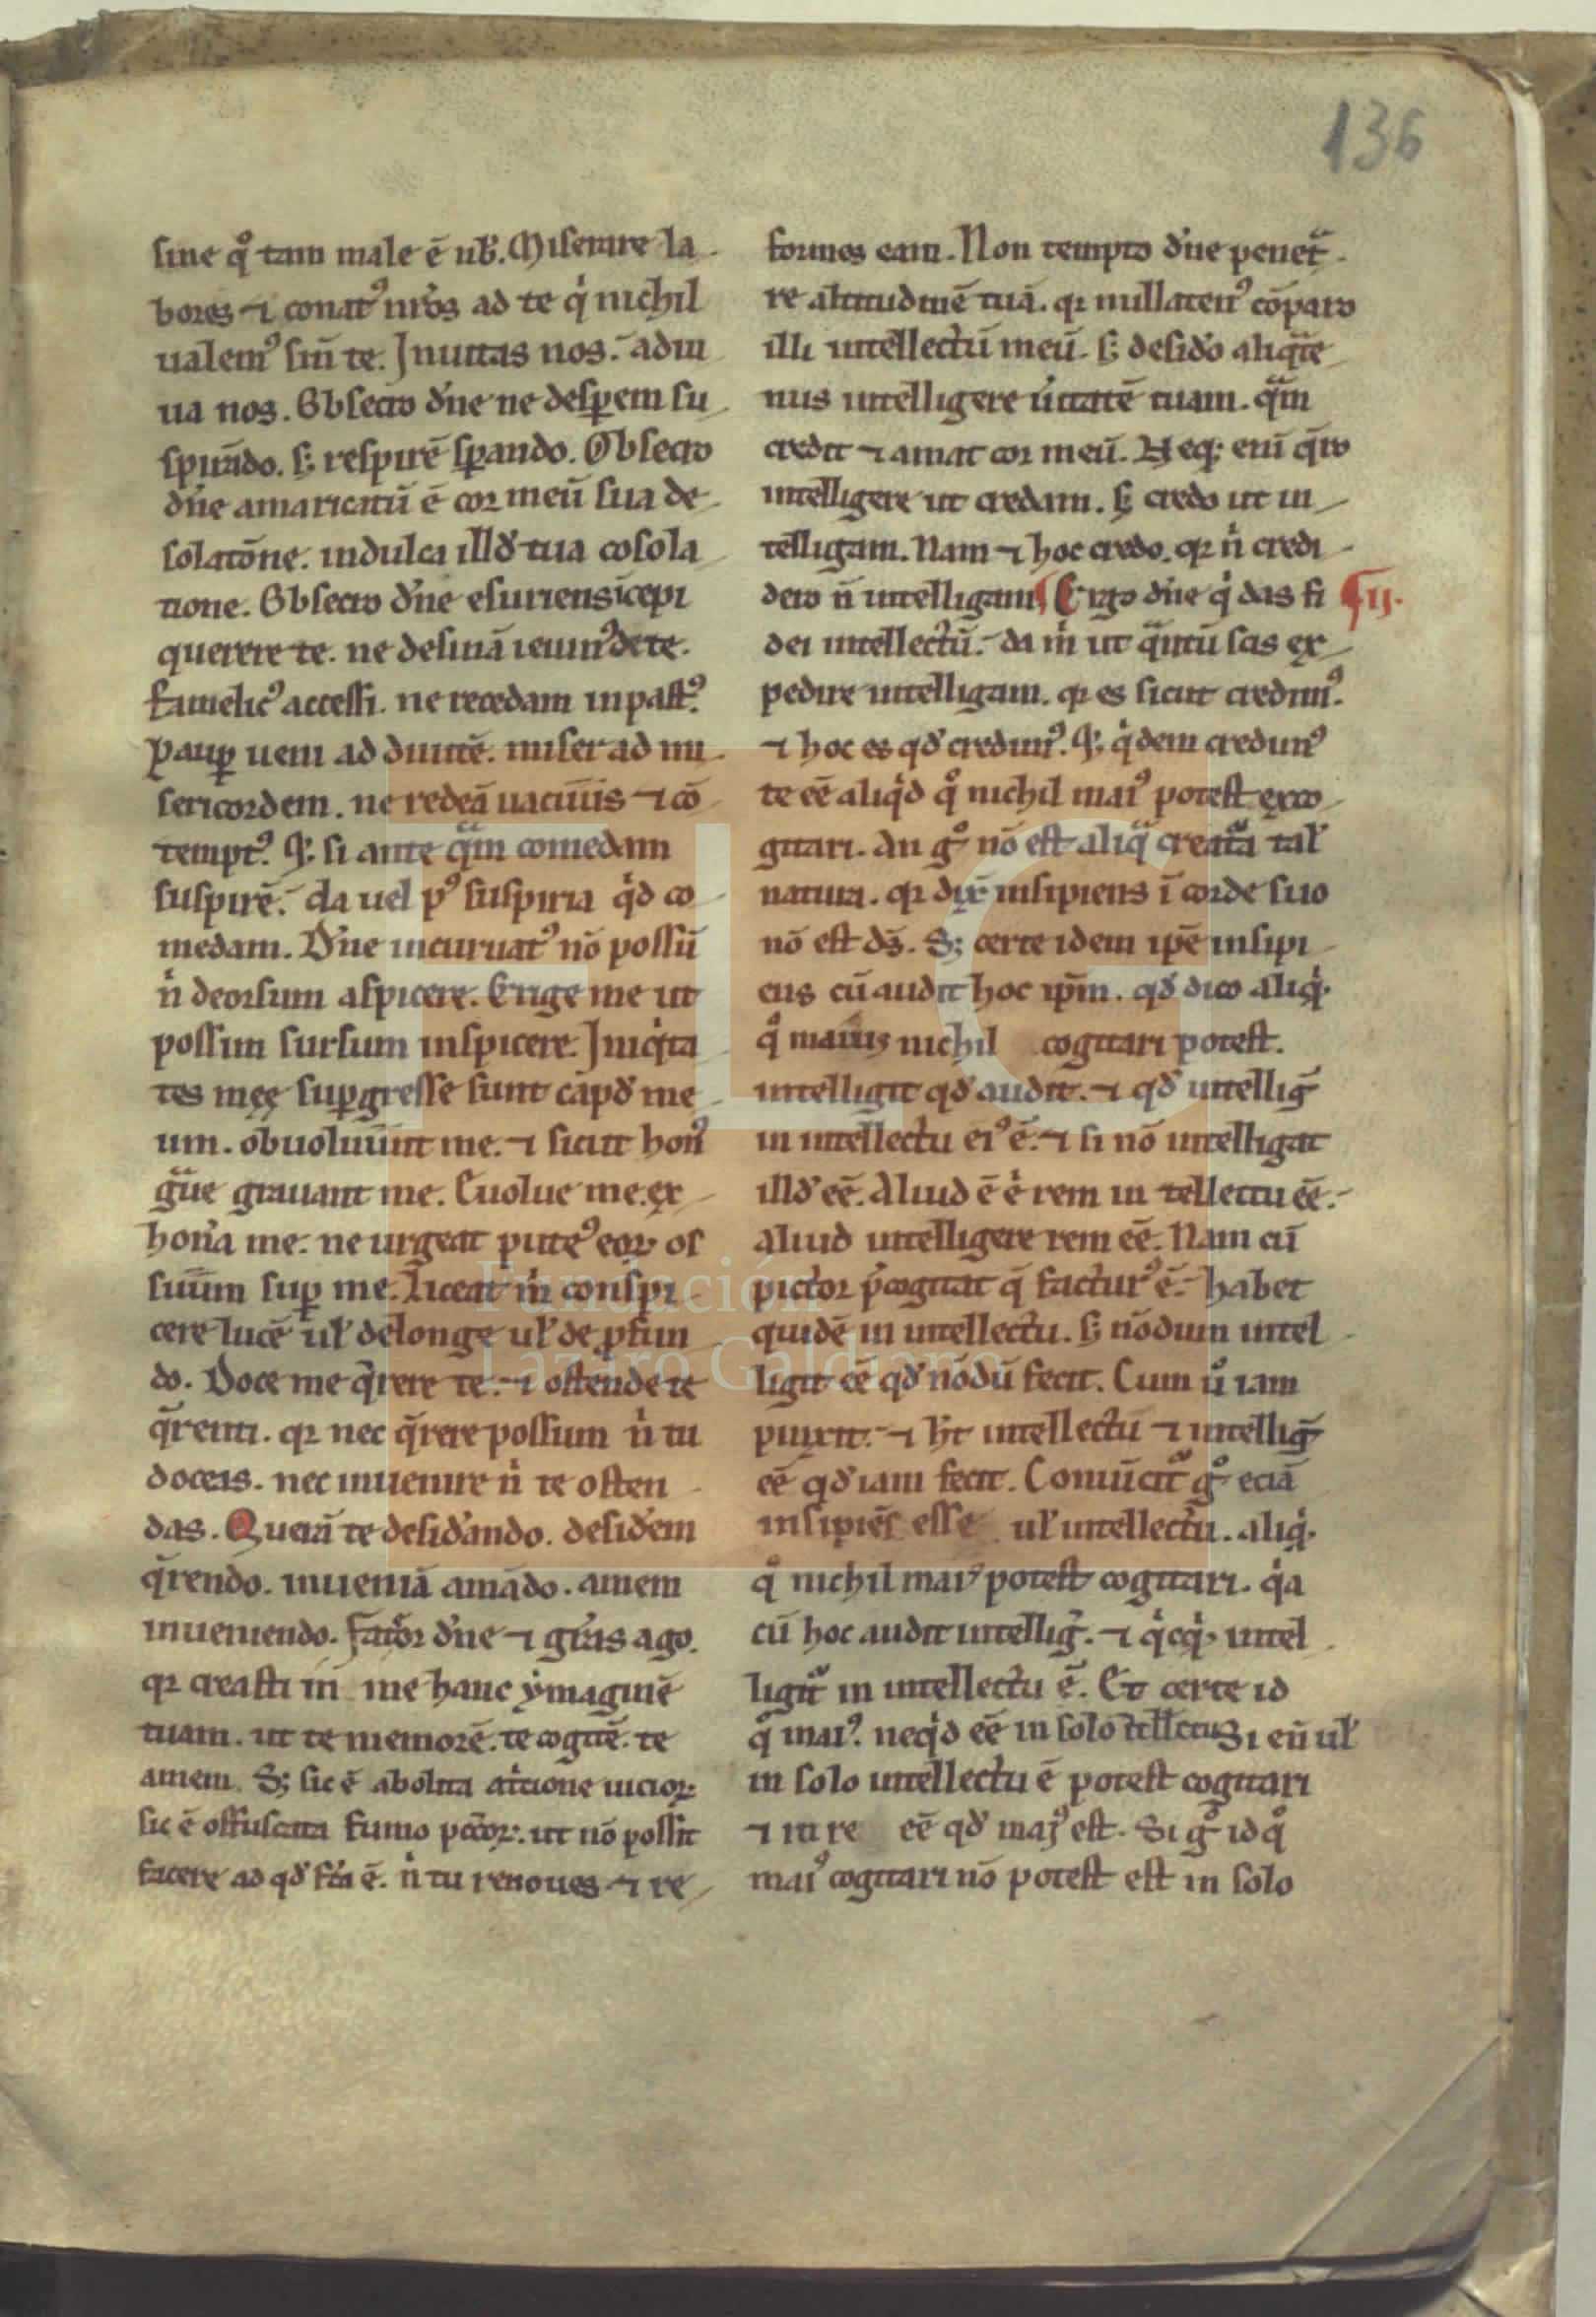 136
sine q° tam male ē nob̄. Miserere la
bores ⁊ conat⁹ nr̄os ad te qⁱ nichil
ualem⁹ sin̄ te. Inuitas nos. adiu
ua nos. Obsecro dn̄e ne desꝑem su
spirādo. s; respirē sꝑando. Obsecro
dn̄e amaricatū ē cor meū sua de
solatōne. indulca illđ tua cōsola
tione. Obsecro dn̄e esuriens īcepi
querere te. ne desinā ieiun⁹ de te.
famelic⁹ accessi. ne recedam inpast⁹.
pauꝑ ueni ad diuitē. miser ad mi
sericordem. ne redeā uacuus ⁊ cō
tempt⁹. Et si ante qᵃm comedam
suspirē. da uel p⁹ suspiria qⁱd co
medam. Dn̄e incuruat⁹ nō possū
nⁱ deorsum aspicere. Erige me ut
possim sursum inspicere. Iniqⁱta
tes meę suꝑgresse sunt capđ me
um. obuoluūnt me. ⁊ sicut hon⁹
gᵃue grauant me. Euolue me. ex
hon̄a me. ne urgeat pute⁹ eoꝝ os
suum suꝑ me. Liceat mⁱ conspi
cere lucē ul̄ de longe ul̄ de ꝓfun
do. Doce me q̄rere te. ⁊ ostende te
q̄renti. qꝛ nec q̄rere possum nⁱ tu
doceas. nec inuenire nⁱ te osten
das. Querā te desiđando. desiđem
q̄rendo. inueniā amādo. amem
inueniendo. Fateor dn̄e ⁊ gr̄as ago.
qꝛ creasti in me hanc ymaginē
tuam. ut te memorē. te cogitē. te
amem. S; sic ē abolita atⁱtione uicioꝝ
sic ē offuscata fumo pccōꝝ. ut nō possit
facere ad qđ fc̄a ē. nⁱ tu renoues ⁊ re
formes eam. Non tempto dn̄e penetᵃ
re altitudinē tuā. qꝛ nullaten⁹ cōparo
illi intellectū meū. s; desiđo aliqᵃte
nus intelligere ūitatē tuam. qᵃm
credit ⁊ amat cor meū. Neq; eni q̄ro
intelligere ut credam. s; credo ut in
telligam. Nam ⁊ hoc credo. qꝛ nⁱ credi
dero n̄ intelligam ¶ Ergo dn̄e qⁱ das fi ¶ ii.
dei intellectū. da mⁱ ut qᵃntū scis ex
pedire intelligam. qꝛ es sicut credim⁹.
⁊ hoc es qđ credim⁹. Et qⁱdem credim⁹
te eē aliqⁱd q° nichil mai⁹ potest exco
gitari. An g° nō est aliqᵃ creatᵃa tal̄
natura. qꝛ dix̄ insipiens ī corde suo
nō est ds̄. S; certe idem ip̄e insipi
ens cū audit hoc ip̄m. qđ dico aliqⁱ.
q° maius nichil cogitari potest.
intelligit qđ audit. ⁊ qđ intelliḡ
in intellectu ei⁹ ē. ⁊ si nō intelligat
illđ eē. Aliud ē eⁱ rem in tellectu eē.
aliud intelligere rem eē. Nam cū
pictor p̄cogitat q̄ factur⁹ ē. habet
quidē in intellectu. s; nōdum intel
ligit eē qđ nōdū fecit. Cum u° iam
pinxit. ⁊ h̄t intellectu ⁊ intelliḡ
eē qđ iam fecit. Conuīcitᵘ g° eciā
insipiēs esse ul̄ intellectu. aliqⁱ.
q° nichil mai⁹ potest cogitari. qⁱa
cū hoc audit intelliḡ. ⁊ qⁱcqⁱ intel
ligitᵘ in intellectu ē. Et certe id
q° mai⁹. neqⁱd eē in solo tellectu Si eni ul̄
in solo intellectu ē potest cogitari
⁊ in re eē qđ mai⁹ est. Si g° id q°
mai⁹ cogitari nō potest est in solo
Fundación
Lázaro Galdiano